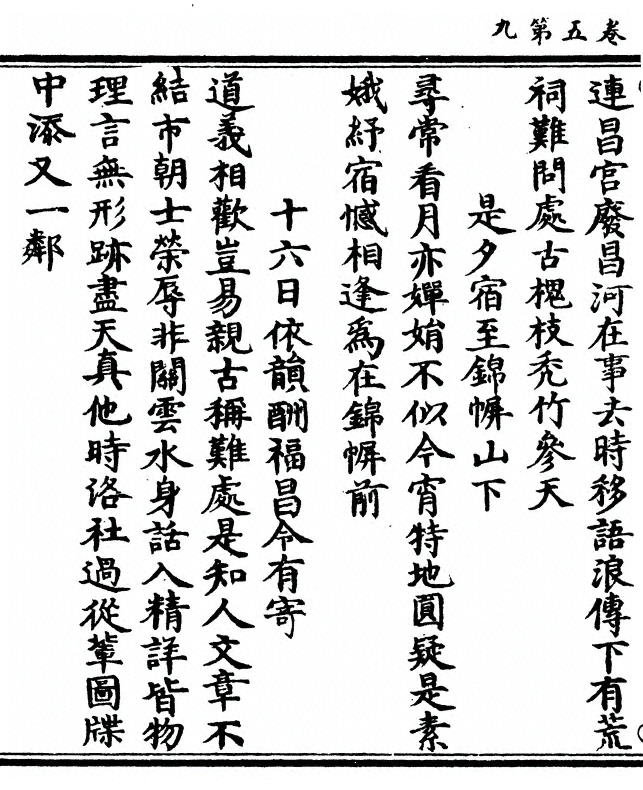 卷五第九
連昌宮廢昌河在事去時移語浪傳下有荒
祠難問處古槐枝禿竹參天
是夕宿至錦幈山下
尋常看月亦嬋娟不似今宵特地圓疑是素
娥紓宿憾相逢為在錦幈前
十六日依韻酬福昌令有寄
道義相歡豈易親古稱難處是知人文章不
結市朝士榮辱非關雲水身話入精詳皆物
理言無形跡盡天真他時洛社過從輩圖牒
中添又一鄰